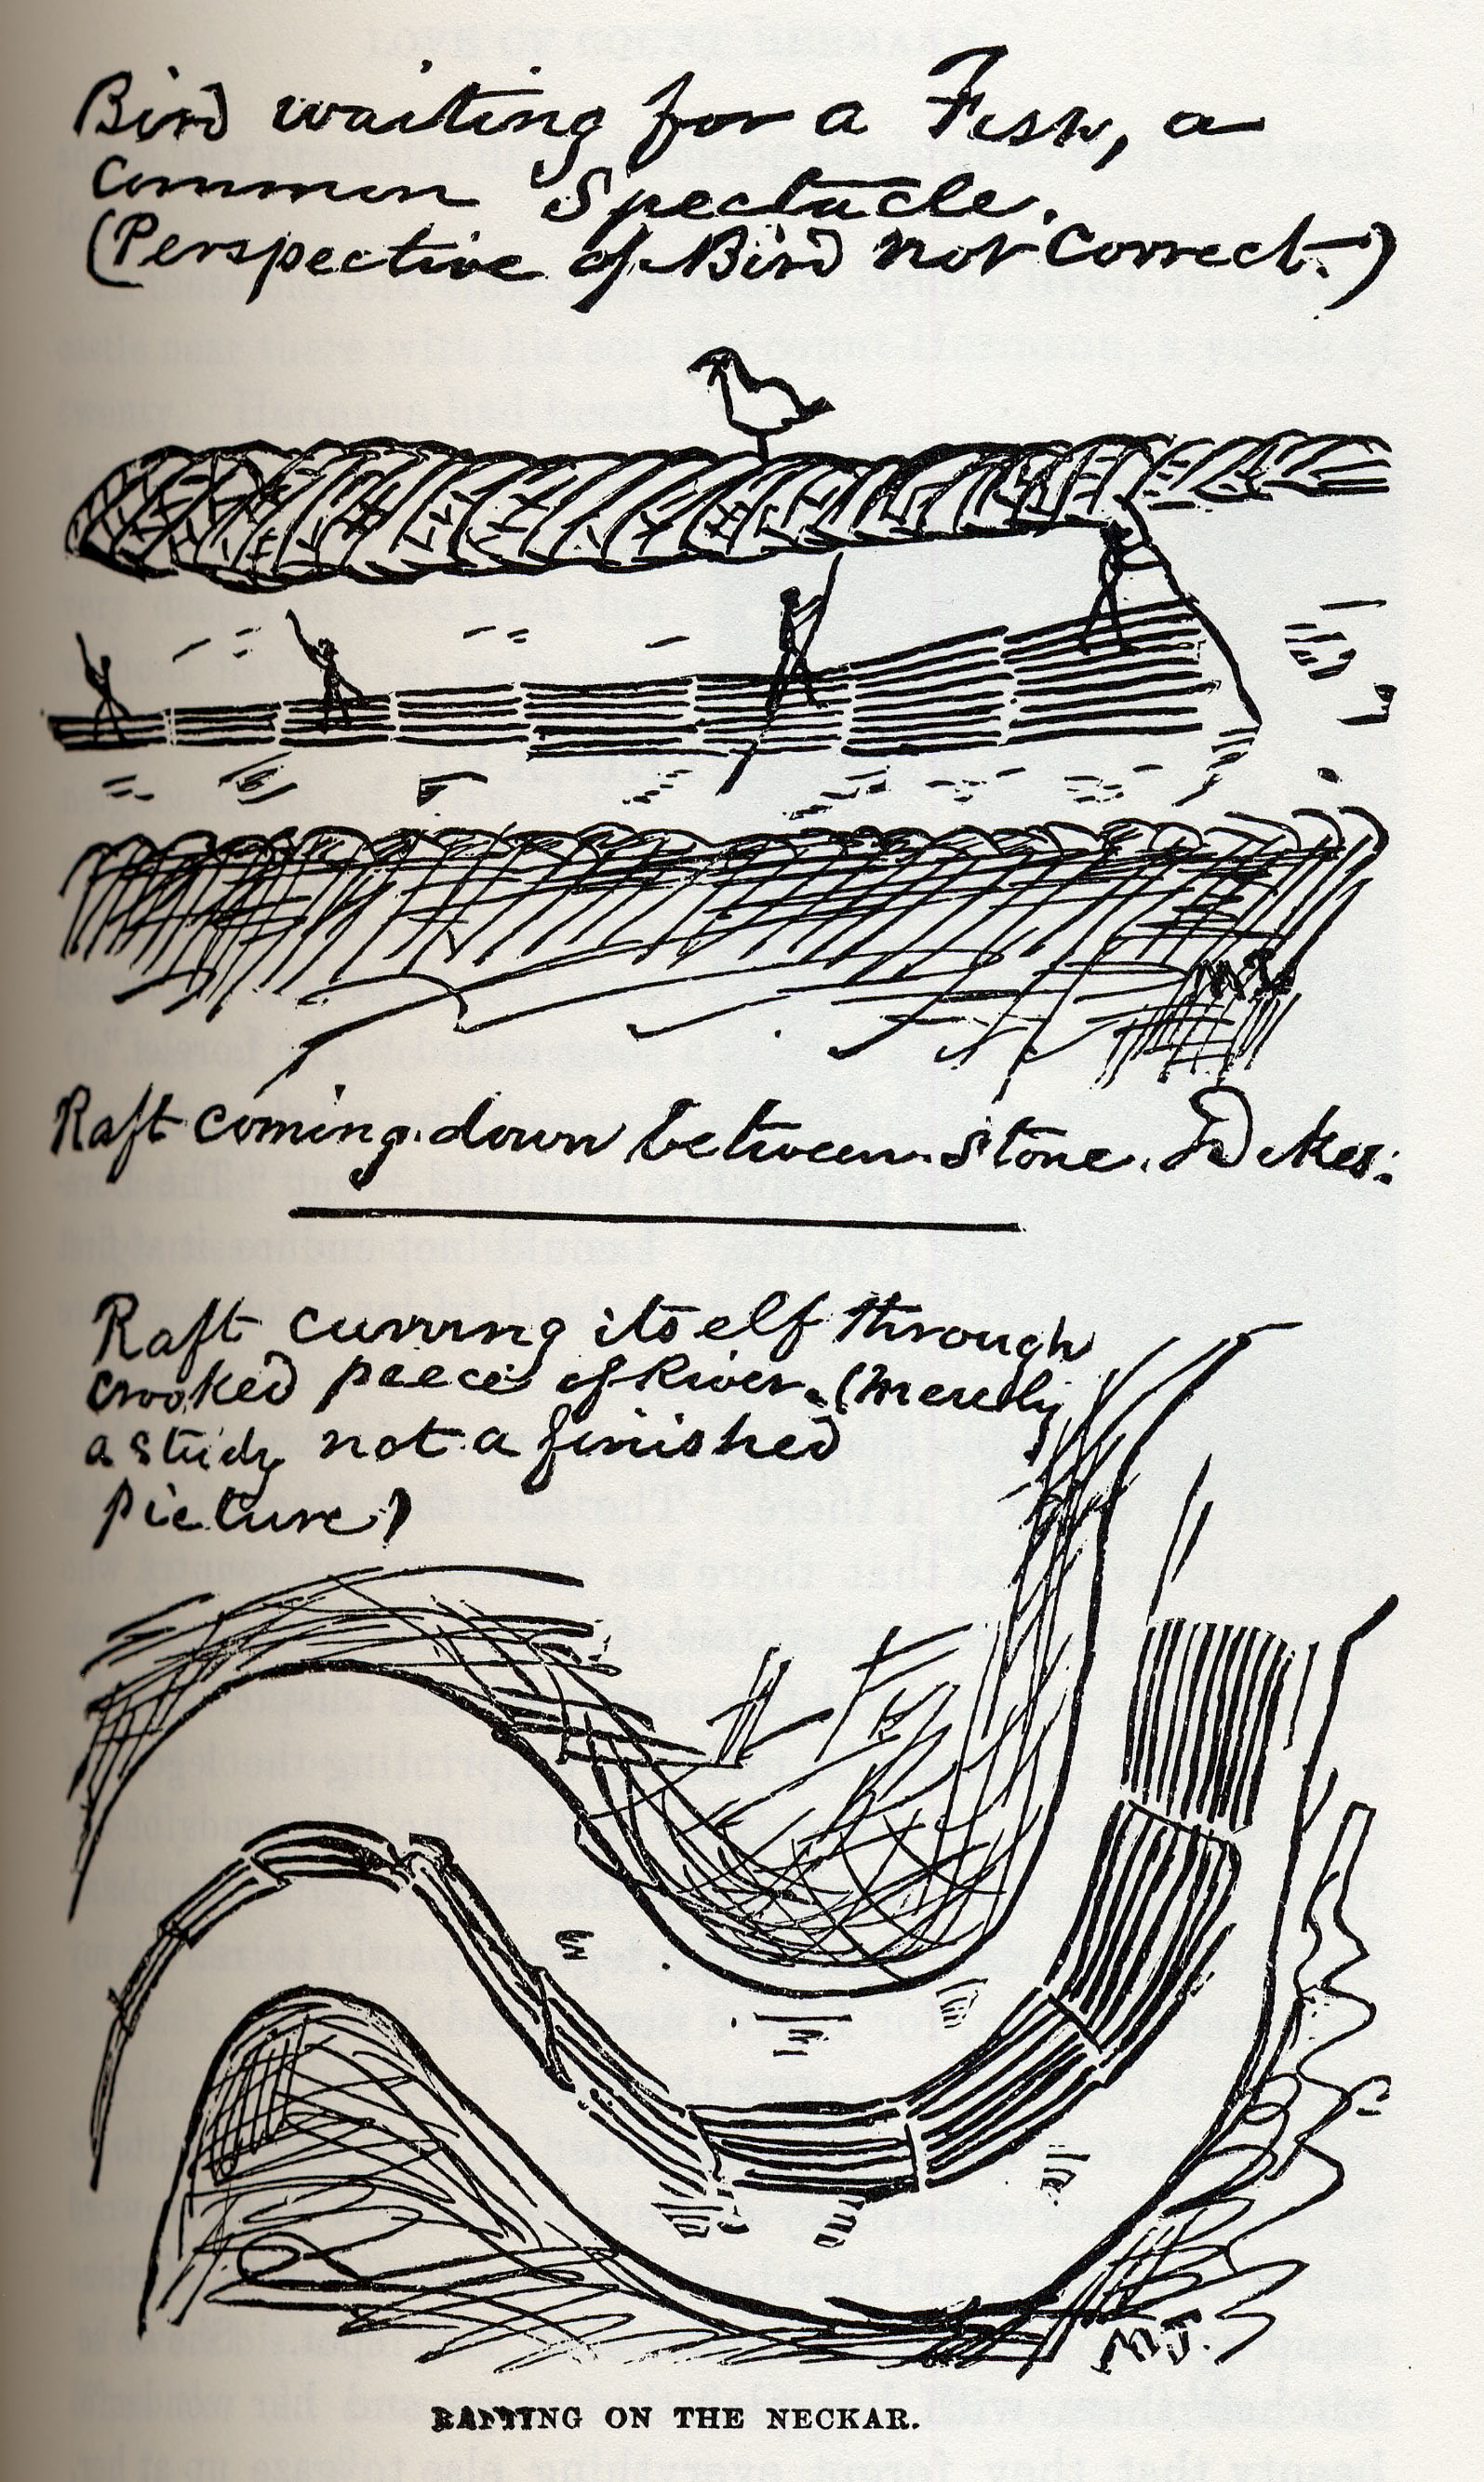 Bird waiting for a Fish, a
Common Spectacle.
(Perspective of Bird not Correct.)
M.T.
Raft coming down between Stone Dikes.
Raft curving itself through
crooked peece of River. (merely
a study not a finished
picture)
M.T.
RAFTING ON THE NECKAR.